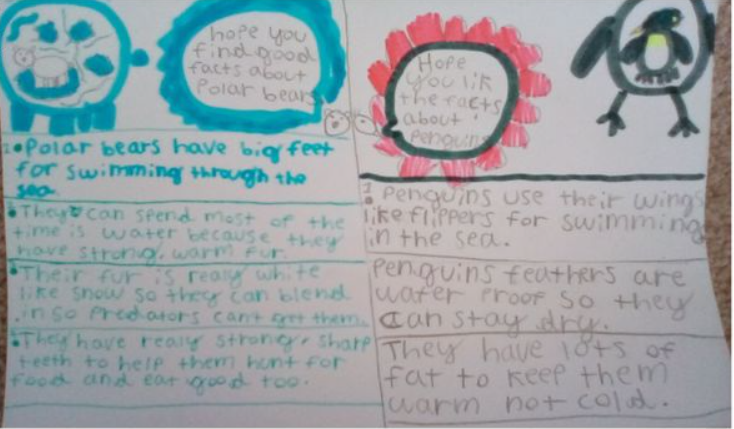 hope you
find good
facts about
Polar bears
1. Polar bears have big feet
for swimming through the
sea.
They can spend most of the
time is water because they
have strong, warm fur.
Their fur is realy white
like snow so they can blend
in so Predators cant get them.
They have realy strong, sharp
teeth to help them hunt for
food and eat good too.
Hope
you lik
the facts
about
Penguins
1. Penguins use their wings
like flippers for swimming
in the sea.
Penguins feathers are
water Proof so they
can stay dry.
They have lots of
fat to keep them
warm not cold.